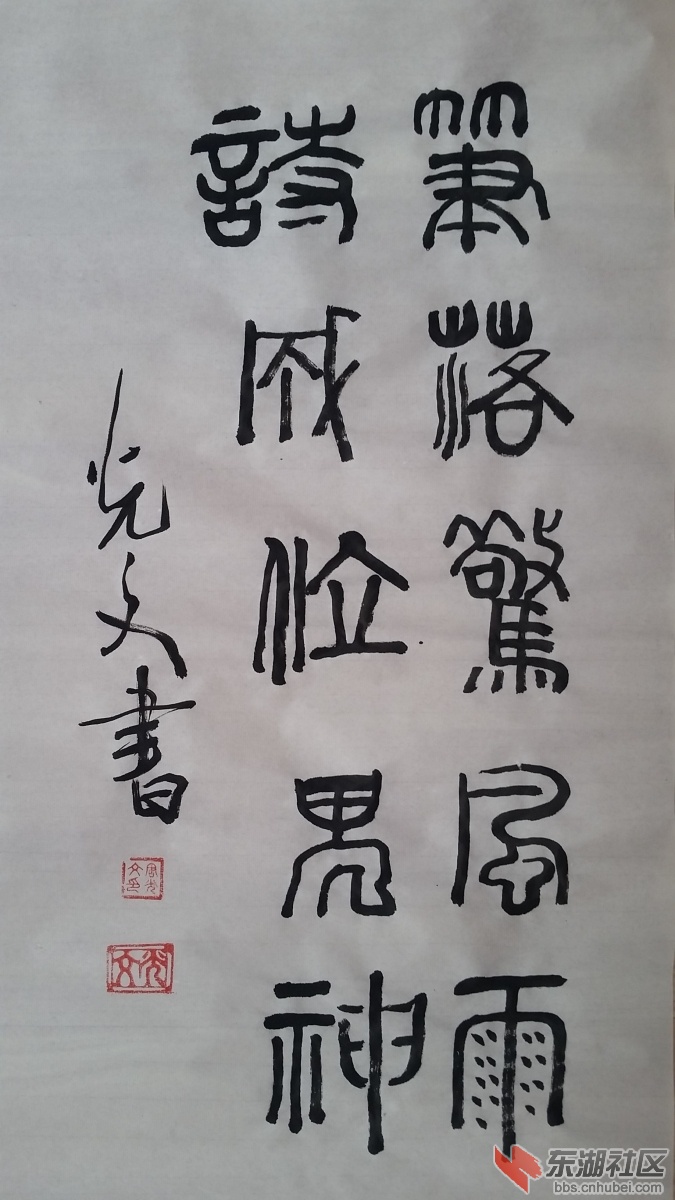 筆落驚風雨
詩成泣鬼神
光文書
周光文印
光文
东湖社区
bbs.cnhubei.com